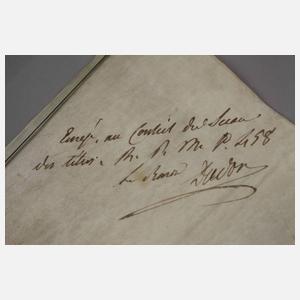 Enregé, au Conseil du Sceau
des titres. R. P. M. P. 458
Le Baron Dudon